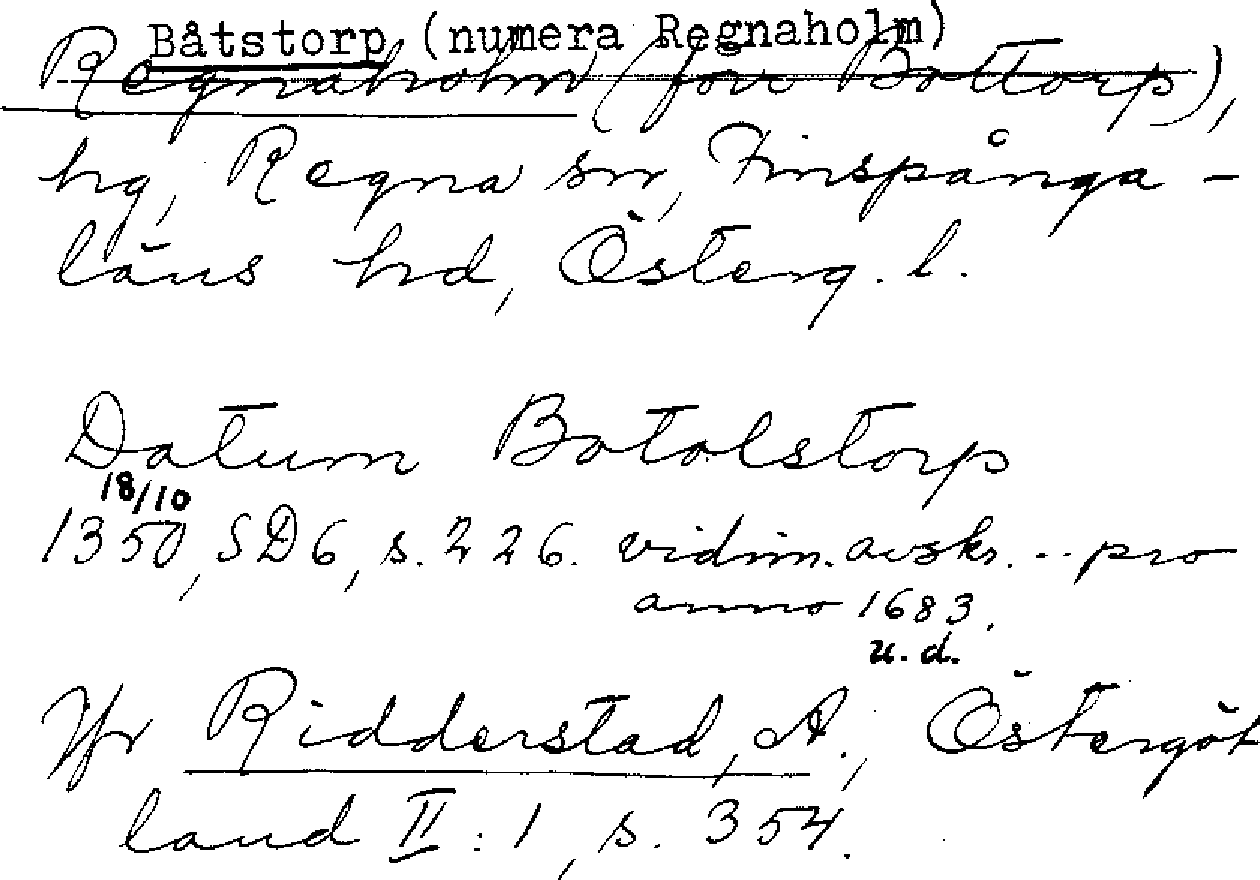 Båtstorp (numera Regnaholm)
Regnaholm (förr Bottorp),
hg, Regna sn, Finspånga-
läns hd, Österg. l.
Datum Botolstorp
18/10
1350, SD 6, s. 226. vidim. avskr. .. pro
anno 1683.
u. d.
Jfr Ridderstad, A., Östergöt
land II : 1, s. 354.